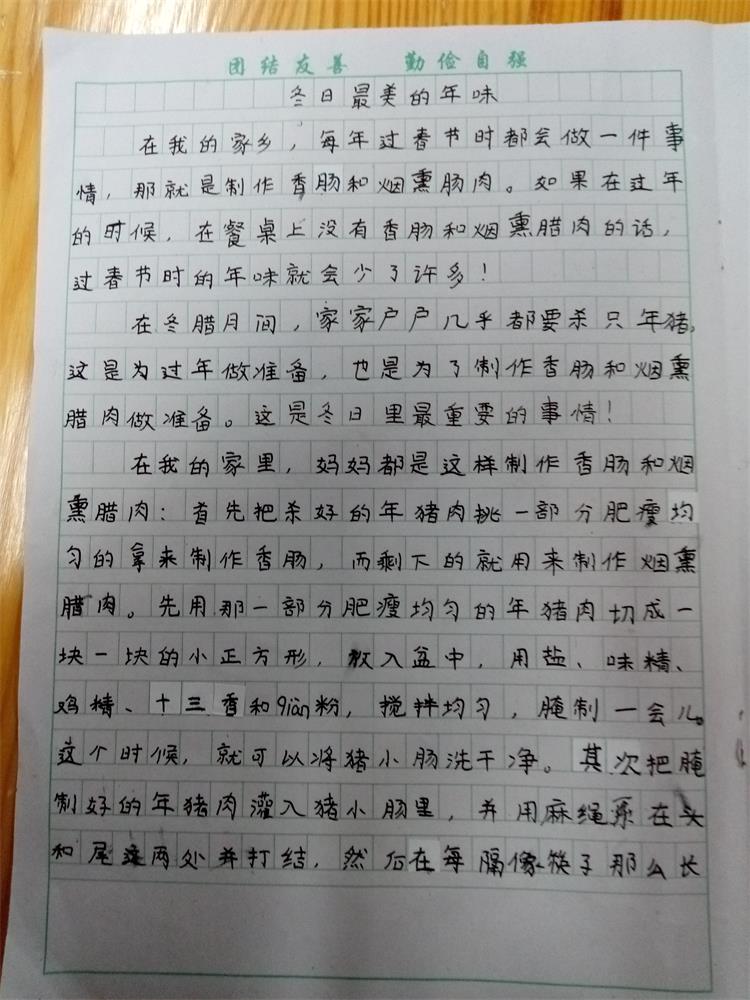 团结友善 勤俭自强
冬日最美的年味
在我的家乡，每年过春节时都会做一件事
情，那就是制作香肠和烟熏肠肉。如果在过年
的时候，在餐桌上没有香肠和烟熏腊肉的话，
过春节时的年味就会少了许多！
在冬腊月间，家家户户几乎都要杀只年猪，
这是为过年做准备，也是为了制作香肠和烟熏
腊肉做准备。这是冬日里最重要的事情！
在我的家里，妈妈都是这样制作香肠和烟
熏腊肉：首先把杀好的年猪肉挑一部分肥瘦均
匀的拿来制作香肠，而剩下的就用来制作烟熏
腊肉。先用那一部分肥瘦均匀的年猪肉切成一
块一块的小正方形，放入盆中，用盐、味精、
鸡精、十三香和qiàn粉，搅拌均匀，腌制一会儿。
这个时候，就可以将猪小肠洗干净。其次把腌
制好的年猪肉灌入猪小肠里，并用麻绳系在头
和尾这两处并打结，然后在每隔像筷子那么长